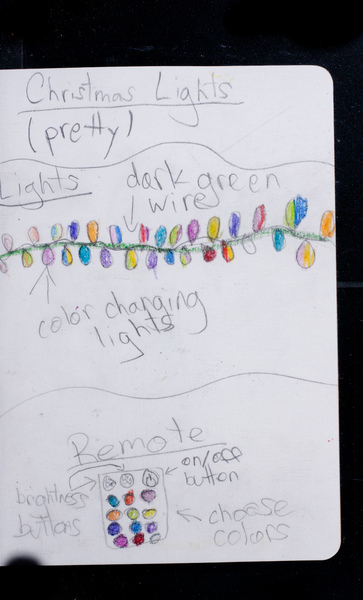 Christmas Lights
(pretty)
Lights
dark green
wire
color changing
lights
Remote
on/off
button
brightness
buttons
choose
colors